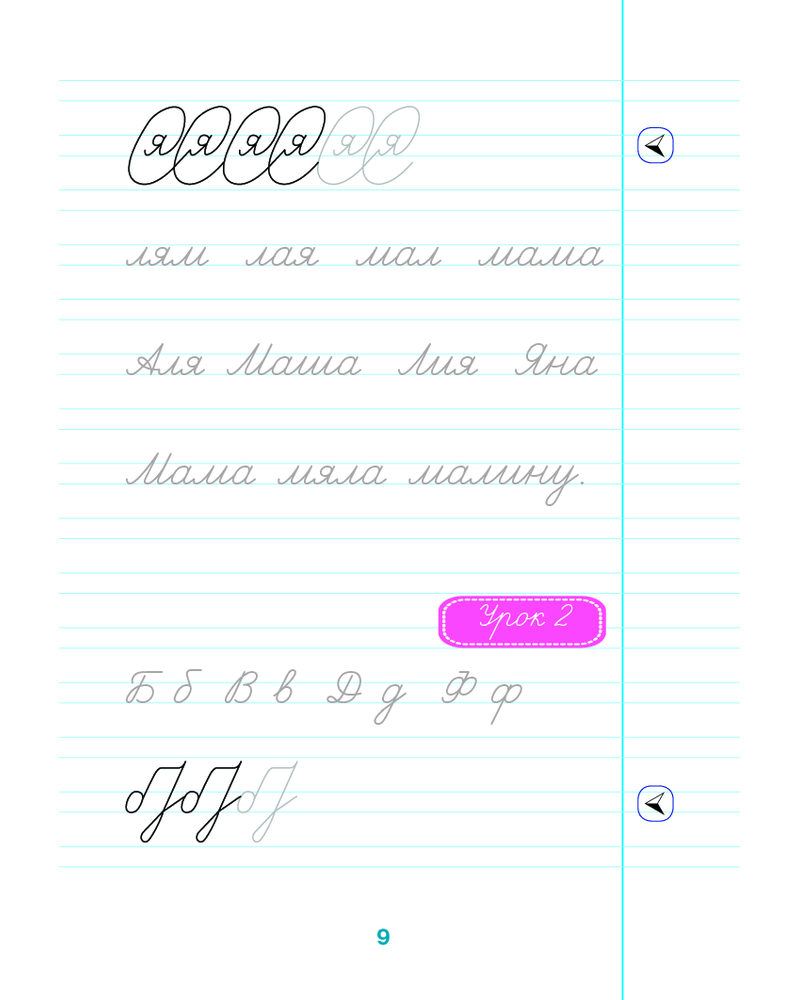 я я я я я я
лям лая мал мама
Аля Маша Лия Яна
Мама мяла малину.
Урок 2
Б б В в Д д Ф ф
9